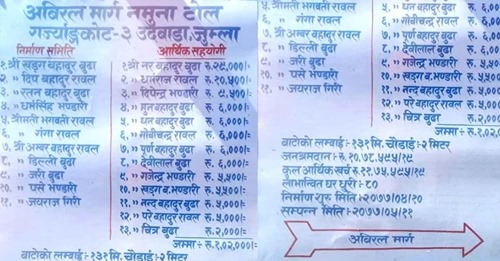 अविरल मार्ग नमुना टोल
गज्याङ्कोट-३ उर्दवाडा, जुम्ला
निर्माण समिति
१. श्री खड्ग बहादुर बुढा
२, " दिप बहादुर रावल
३, " रतन बहादुर बुढा
४, " धर्मसिंह भण्डारी
५. श्रीमती भगवती रावल
६, " गंगा रावल
७. श्री अम्बर बहादुर रावल
८, " डिल्ली बुढा
९, " जरी बुढा
१०, " पसे भण्डारी
११, " जयराज गिरी
आर्थिक सहयोगी
१. श्री नर बहादुर बुढा रु. २८,०००/=
२, " धर्मराज रावल रु. १०,५००/=
३, " दिपेन्द्र भण्डारी रु. ८,५००/=
४, " मुन बहादुर बुढा रु. ६,०००/=
५, " धन बहादुर बुढा रु. ६,०००/=
६, " गोबीचन्द्र रावल रु. ६,०००/=
७, " पूर्ण बहादुर बुढा रु. ६,०००/=
८, " देवीलाल बुढा रु. ६,०००/=
९, " गजेन्द्र भण्डारी रु. ५,५००/=
१०, " खड्ग ब. भण्डारी रु. ५,५००/=
११, " नन्द बहादुर बुढा रु. ५,५००/=
१२, " परे बहादुर रावल रु. ५,५००/=
१३, " चित्र बुढा रु. २,०००/=
जम्मा ÷ रु. १,०२,०००/=
बाटोको लम्बाई : १३१ मि. चौडाई : २ मिटर
५. श्रीमती भगवती रावल
६, " गंगा रावल
७. श्री अम्बर बहादुर रावल
८, " डिल्ली बुढा
९, " जरी बुढा
१०, " पसे भण्डारी
११, " जयराज गिरी
५, " धन बहादुर बुढा रु.
६, " गोबीचन्द्र रावल रु.
७, " पूर्ण बहादुर बुढा रु.
८, " देवीलाल बुढा रु.
९, " गजेन्द्र भण्डारी रु.
१०, " खड्ग ब. भण्डारी रु.
११, " नन्द बहादुर बुढा रु.
१२, " परे बहादुर रावल रु.
१३, " चित्र बुढा रु.
जम्मा ÷ रु. १
बाटोको लम्बाई : १३१ मि. चौडाई : २ मिटर
जनश्रमदान : रु. १०,७८,५९५/१९
कुल आर्थिक खर्च रु. ११,७५,५९५/१९
लाभान्वित घर धुरी : ८०
निर्माण शुरु मिति : २०७७/०४/२०
सम्पन्न मिति : २०७७/०५/११
अविरल मार्ग